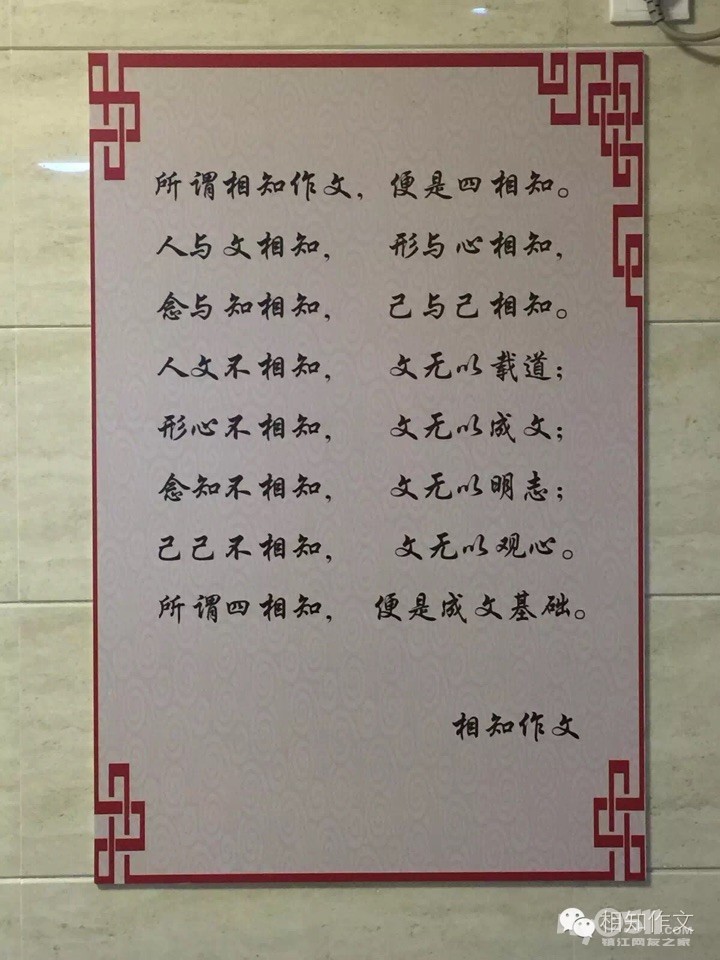 所谓相知作文，便是四相知。
人与文相知，形与心相知，
念与知相知，己与己相知。
人文不相知，文无以载道；
形心不相知，文无以成文；
念知不相知，文无以明志；
己己不相知，文无以观心。
所谓四相知，便是成文基础。
相知作文
相知作文
.COM
镇江网友之家